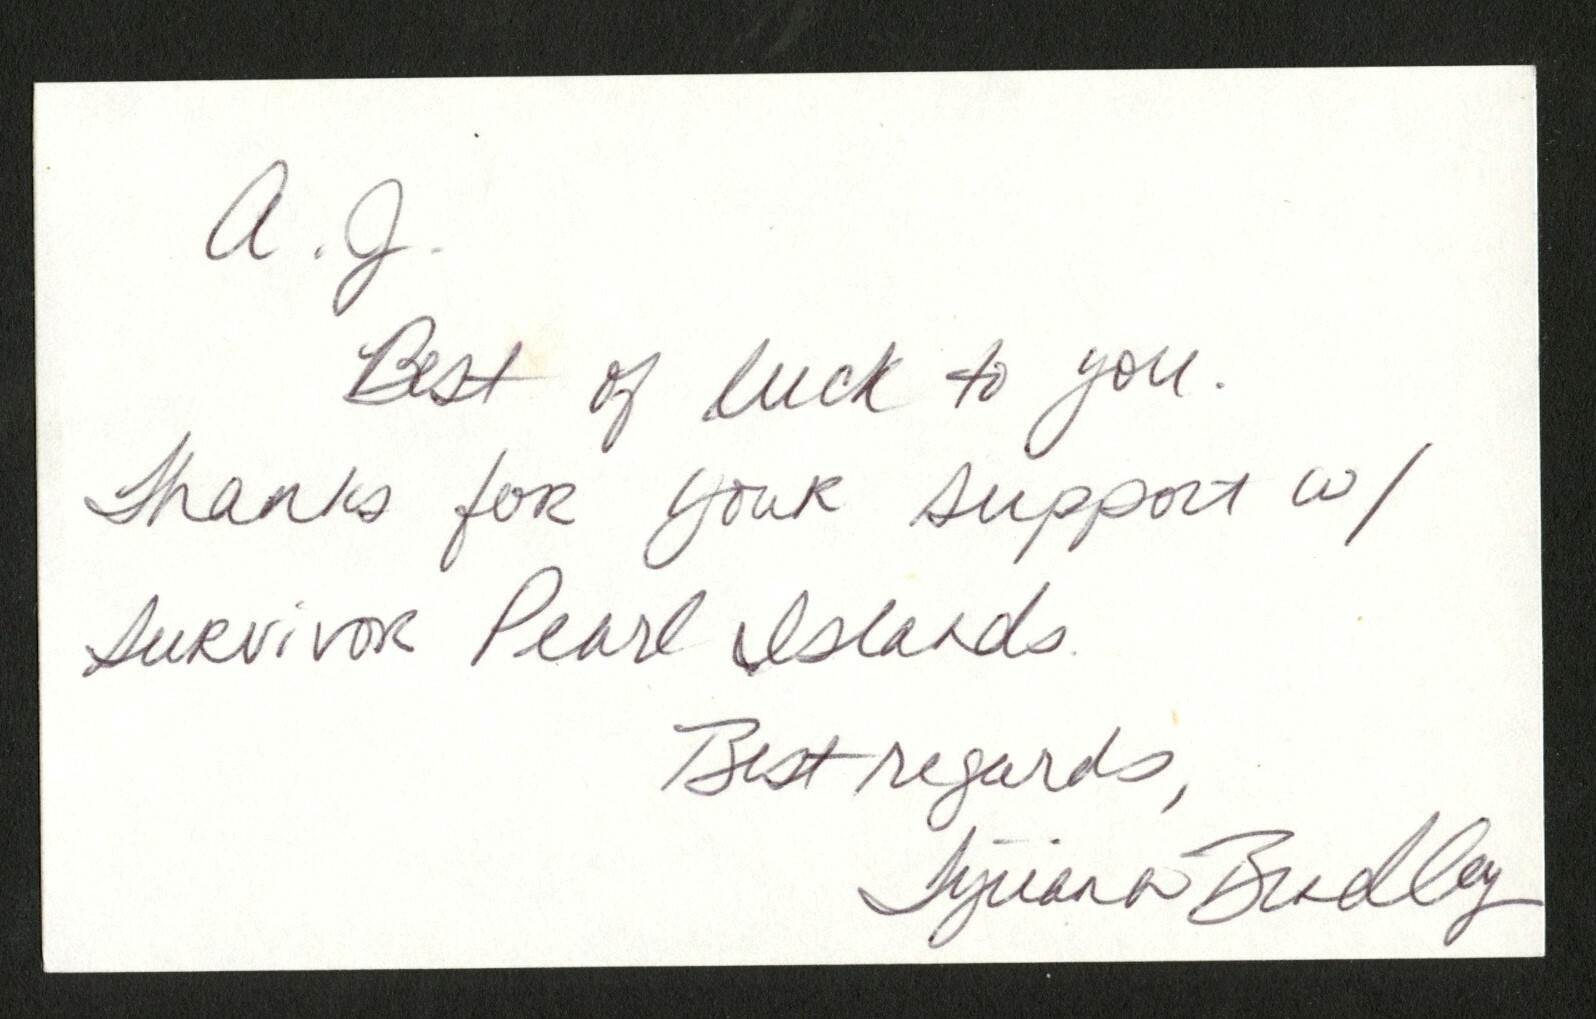 A. J.
Best of luck to you.
Thanks for your support w/
Survivor Pearl Islands.
Best regards,
Tijuana Bradley